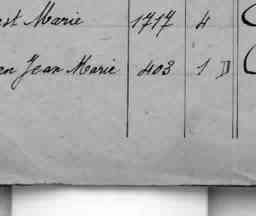 st Marie 1717 4
en Jean Marie 403 1 D